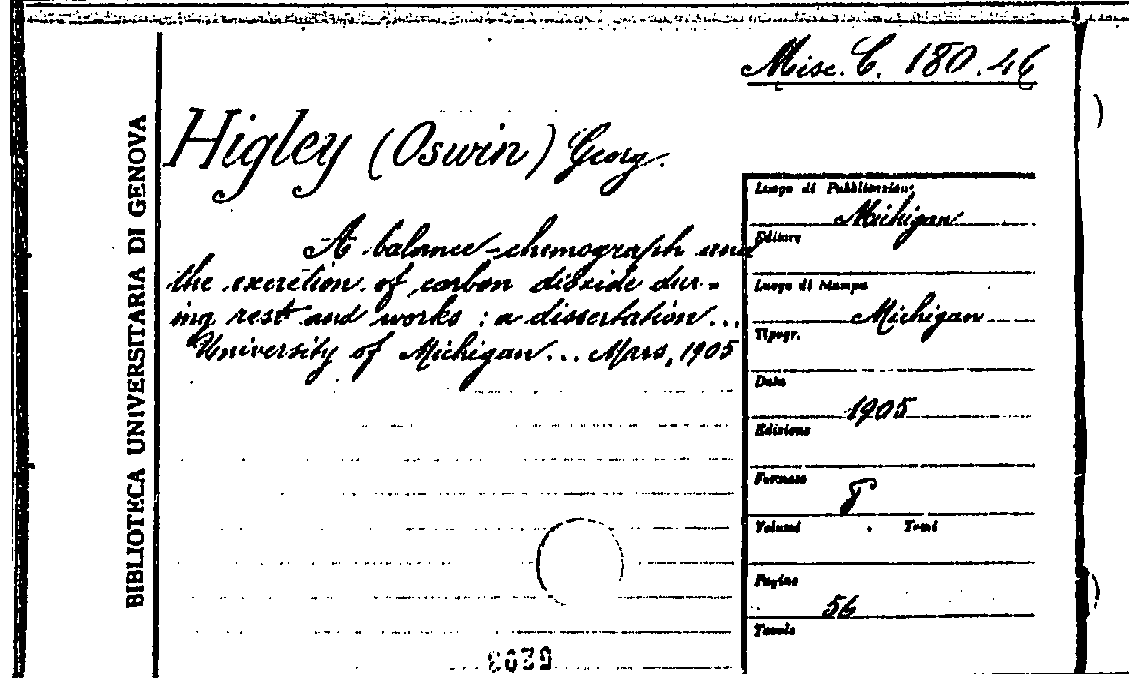 Misc. C. 180.46
BIBLIOTECA UNIVERSITARIA DI GENOVA
Higley (Oswin) Georg.
A balance-chemograph and
the excretion of carbon dioxide dur-
ing rest and works : a dissertation...
University of Michigan... Mars, 1905
Luogo di Pubblicazione
Michigan
Editore
Luogo di Stampa
Michigan
Tipogr.
Data
1905
Edizione
Formato
8
Volumi Tomi
Pagine
56
Tavole